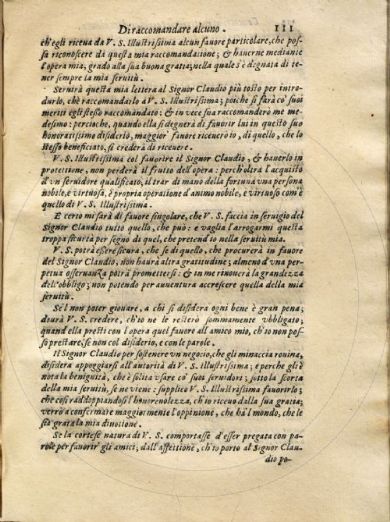 Di raccomandare alcuno. 111
ch'egli riceua da V. S. Illustrissima alcun fauore particolare, che pos-
sa riconoscere di questa mia raccomandatione; & hauerne mediante
l'opera mia, grado alla sua buona gratia; nella quale s'è degnata di te-
ner sempre la mia seruitù.
Seruirà questa mia lettera al Signor Claudio più tosto per intro-
durlo, che raccomandarlo à V. S. Illustrissima; poiche si farà co' suoi
meriti egli stesso raccomandato; & in vece sua raccomanderò me me-
desimo: percioche, quando ella si degnerà di fauorir lui in questo suo
honoratissimo disiderio, maggior' fauore riceuerò io, di quello, che lo
stesso beneficiato, si crederà di riceuere.
V. S. Illustrissima col fauorire il Signor Claudio, & hauerlo in
protettione, non perderà il frutto dell'opera: perch'oltra l'acquisto
d'vn seruidore qualificato, il trar di mano della fortuna vna persona
nobile, e virtuosa, è propria operatione d'animo nobile, e virtuoso com'è
quello di V. S. Illustrissima.
E certo mi sarà di fauore singolare, che V. S. faccia in seruigio del
Signor Claudio tutto quello, che può: e vaglia l'arrogarmi questa
troppa sicurtà per segno di quel, che pretendo in nella seruitù mia.
V. S. potrà essere sicura, che se di quello, che procurerà in fauore
del Signor Claudio, non haurà altra gratitudine; almeno d'vna per-
petua osseruanza potrà promettersi: & in me rinouerà la grandezza
dell'obbligo; non potendo per auuentura accrescere quella della mia
seruitù.
Se'l non poter giouare, a chi si disidera ogni bene è gran pena;
dourà V. S. credere, ch'io ne le resterò sommamente obbligato;
quand'ella presti con l'opera quel fauore all'amico mio, ch'io non pos-
so prestare, se non col disiderio, e con le parole.
Il Signor Claudio per sostenere vn negocio, che gli minaccia rouina,
disidera appoggiarsi all'autorità di V. S. Illustrissima; e perche gli è
nota la benignità, che è solita vsare co' suoi seruidori; sotto la scorta
della mia seruitù, se ne viene: supplico V. S. Illustrissima fauorirlo;
che così raddoppiandosi l'honreuolezza, ch'io riceuo dalla sua gratia;
verrò a confermare maggiormente l'oppinione, che hà'l mondo, che le
sia grata la mia diuotione.
Se la cortese natura di V. S. comportasse d'esser pregata con pa-
role per fauorir' gli amici; dall'affettione, ch'io porto al Signor Clau-
dio po-